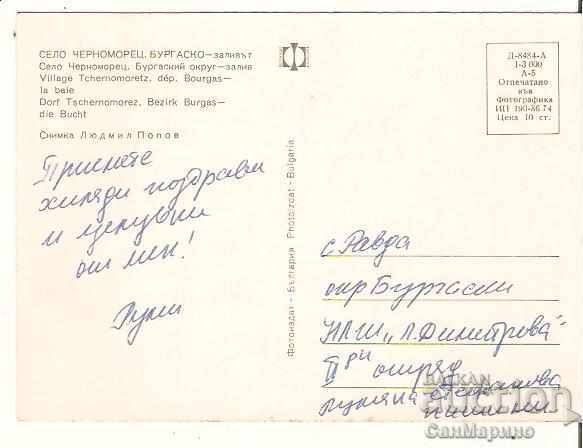 СЕЛО ЧЕРНОМОРЕЦ, БУРГАСКО—заливът
Село Черноморец. Бургаский округ—залив
Village Tchernomoretz, dép. Bourgas—
la baie
Dorf Tschernomorez, Bezirk Burgas—
die Bucht
Снимка Людмил Попов
Приемете
хиляди поздрави
и целувки
от мен!
Руми
Фотоиздат · България Photoizdat · Bulgaria
Д-8484-А
1-3 000
А-5
Отпечатано
във
Фотографика
ИП 190-86.74
Цена 10 ст.
с. Равда
окр Бургаски
НПШ „Л. Димитрова"
II ри отряд
Румяна Стефанова
БАЛКАН
auction
СанМарино